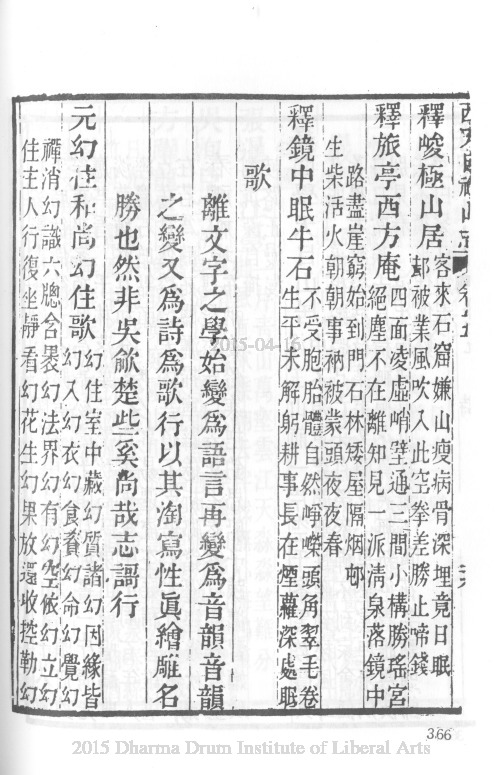 釋晙極山居
客來石窟嫌山瘦病骨深埋竟日眠
郤被業風吹入此空拳差勝止啼錢
釋旅亭西方庵
四面凌虛峭壁通三間小構勝瑤宮
絕塵不在離知見一派清泉落鏡中
路盡崖窮始到門石林矮屋隔烟邨
生柴活火朝朝事衲被蒙頭夜夜春
釋鏡中眠牛石
不受胞胎體自然崢嶸頭角翠毛卷
生平未解躬耕事長在煙蘿深處眠
歌
離文字之學始變爲語言再變爲音韻音韻
之變又爲詩爲歌行以其瀏寫性眞繪雕名
勝也然非吳歈楚些奚尚哉志謌行
元幻住和尚幻住歌
幻住室中藏幻質諸幻因緣皆
幻入幻衣幻食資幻命幻覺幻
禪消幻識六牕含褁幻法界幻有幻空依幻立幻
住主人行復坐靜看幻花生幻果放還收控勒幻
366
2015-04-16
2015 Dharma Drum Institute of Liberal Arts